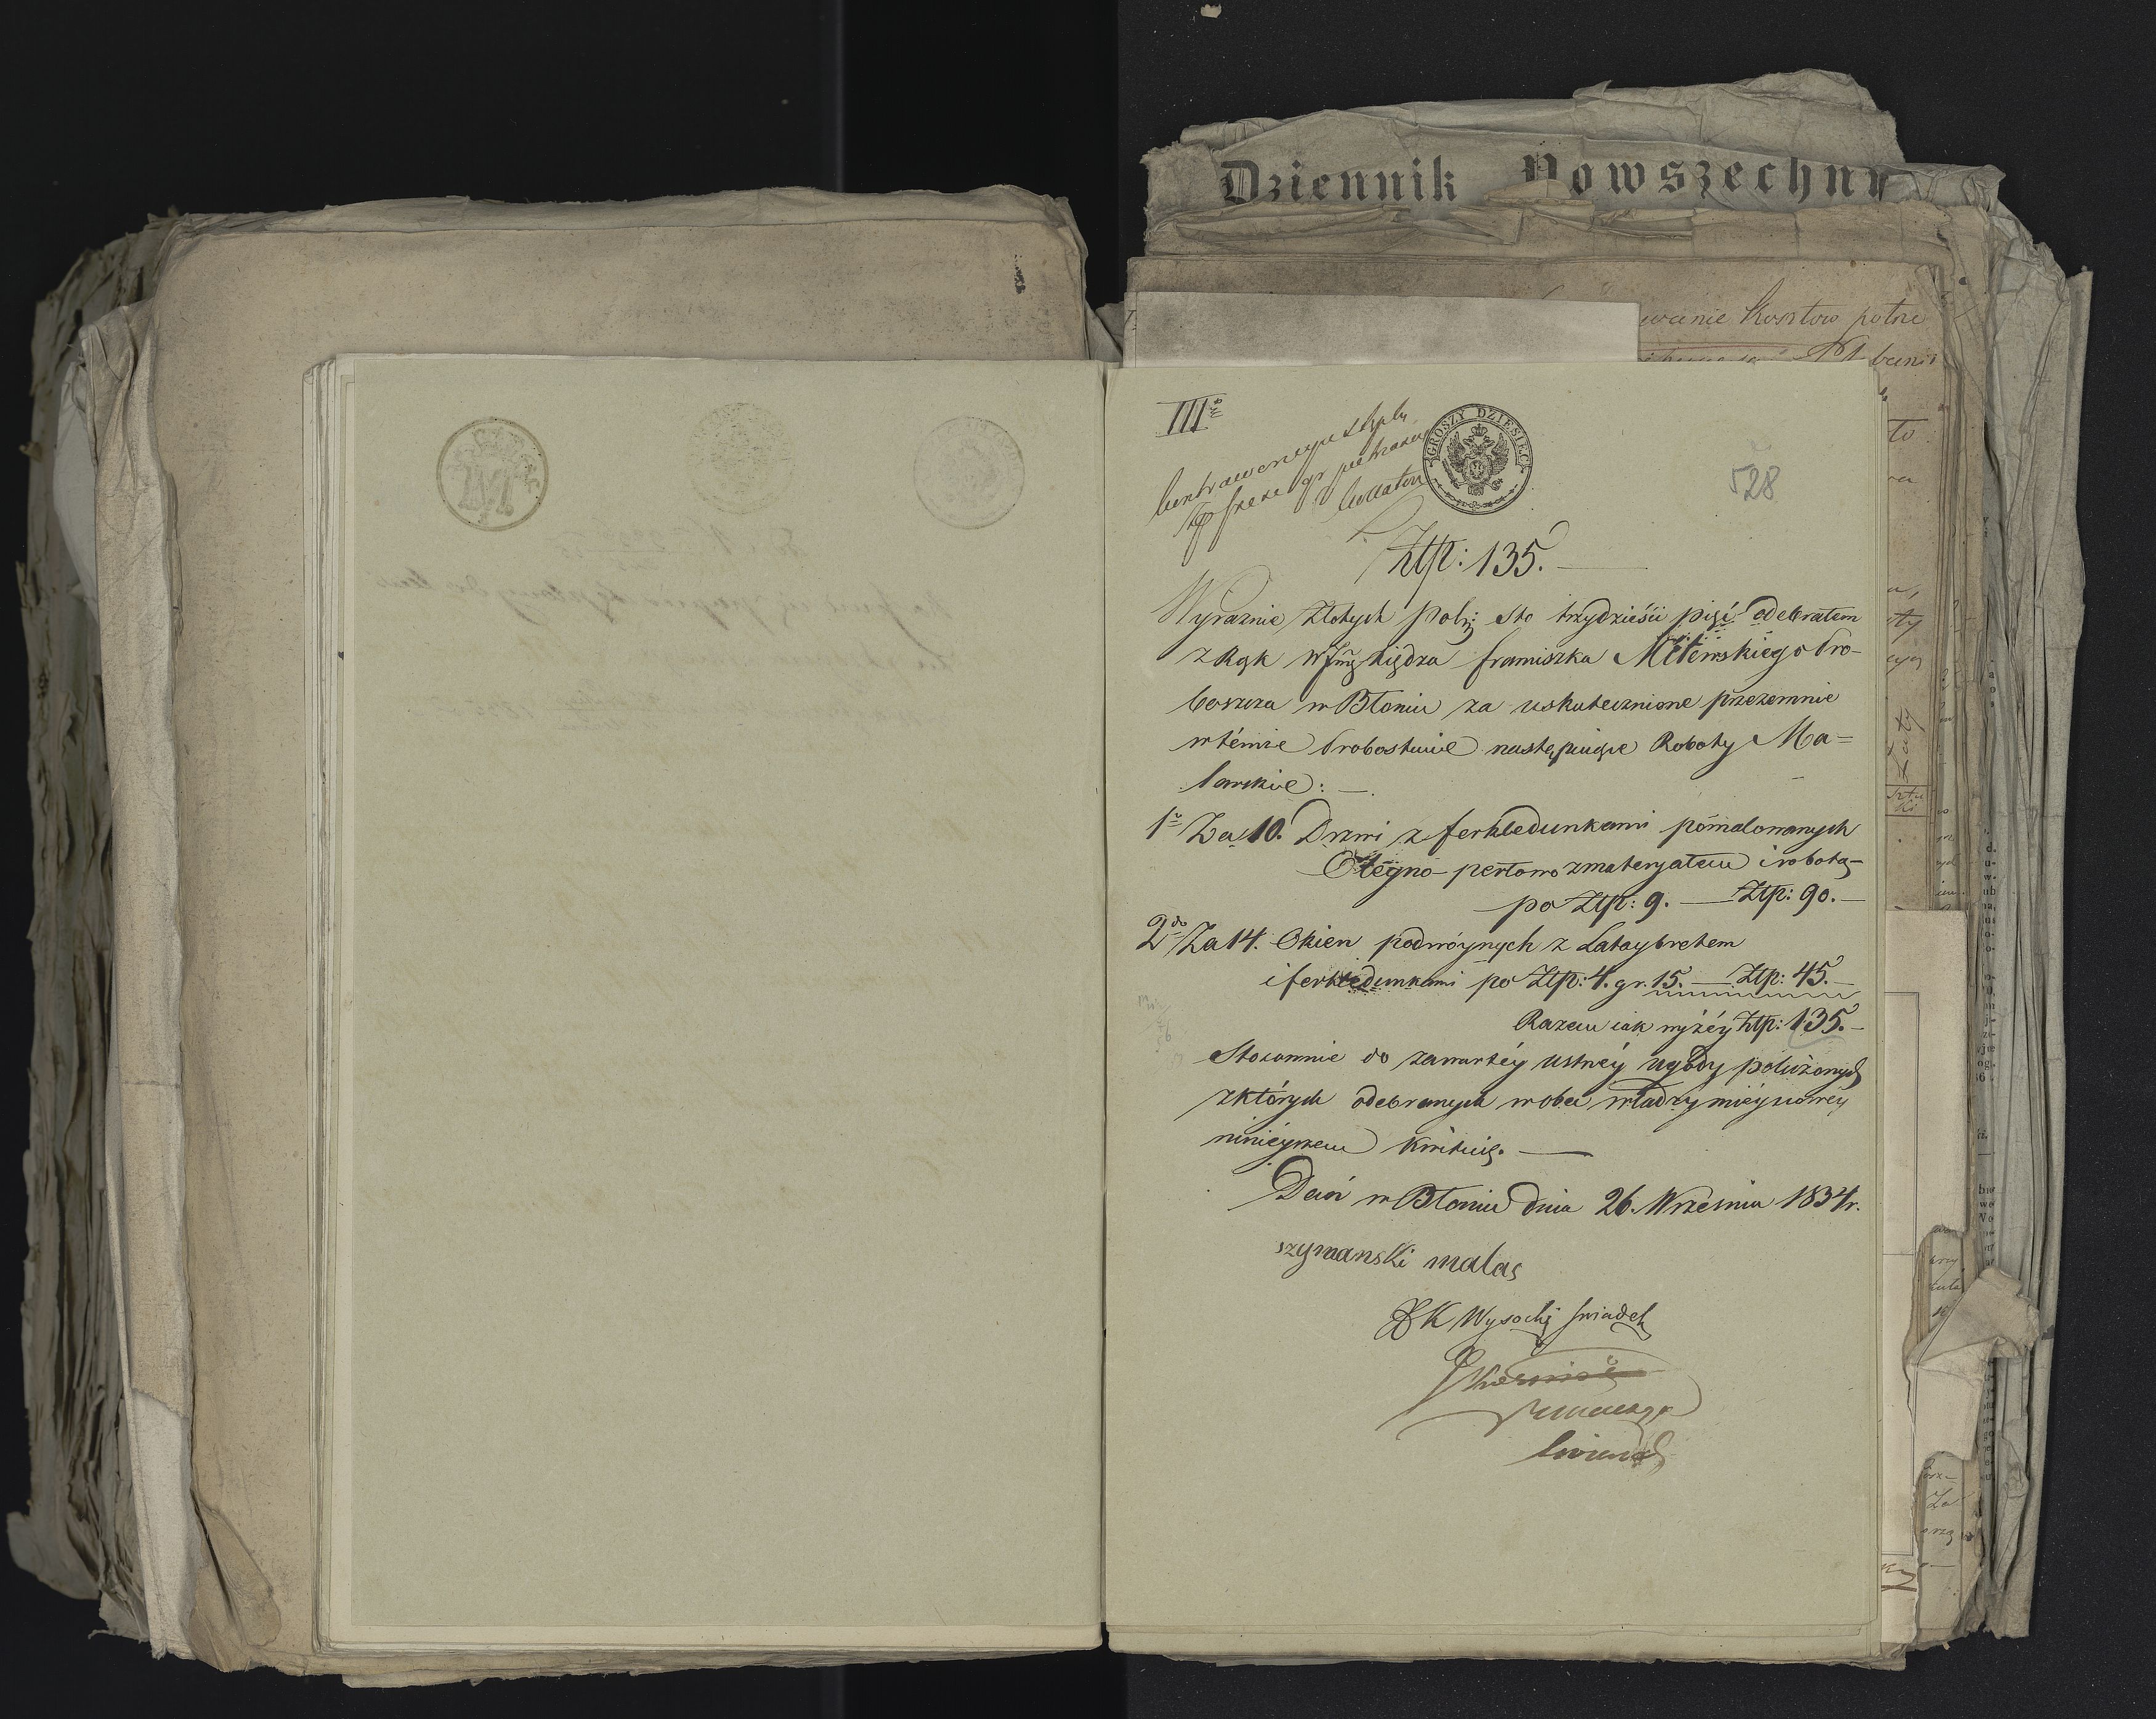 Dziennik Powszechny
wanie Kosztow potrze
III
GROSZY DZIESIĘĆ
528
Ztp: 135.
Wyraznie Złotych Polsz: Sto trzydzieści pięć odebrałem
z Rąk WJmę Księdza franciszka Pro-
boszcza w Błoniu za uskutecznione przezemnie
w témże Probostwie następuiące Roboty Ma=
larskie: —
1º Za 10. Drzwi z ferkledunkami pomalowanych
Oleyno perłowo z materyałem i robotą
po Ztp: 9. — Ztp: 90. —
2do Za 14. Okien podwóynych z Lataybretem
i ferkledunkami po Ztp: 4. gr. 15. — Ztp: 45. —
Razem iak wyżéy Ztp: 135. —
Stosownie do zawartéy ustnéy ugody położonych
z których odebranych w obec władzy mieyscowéy
ninieyszem kwituię. —
Dań w Błoniu dnia 26. Września 1834 r.
szymanski malaz
K Wysocki swiadek